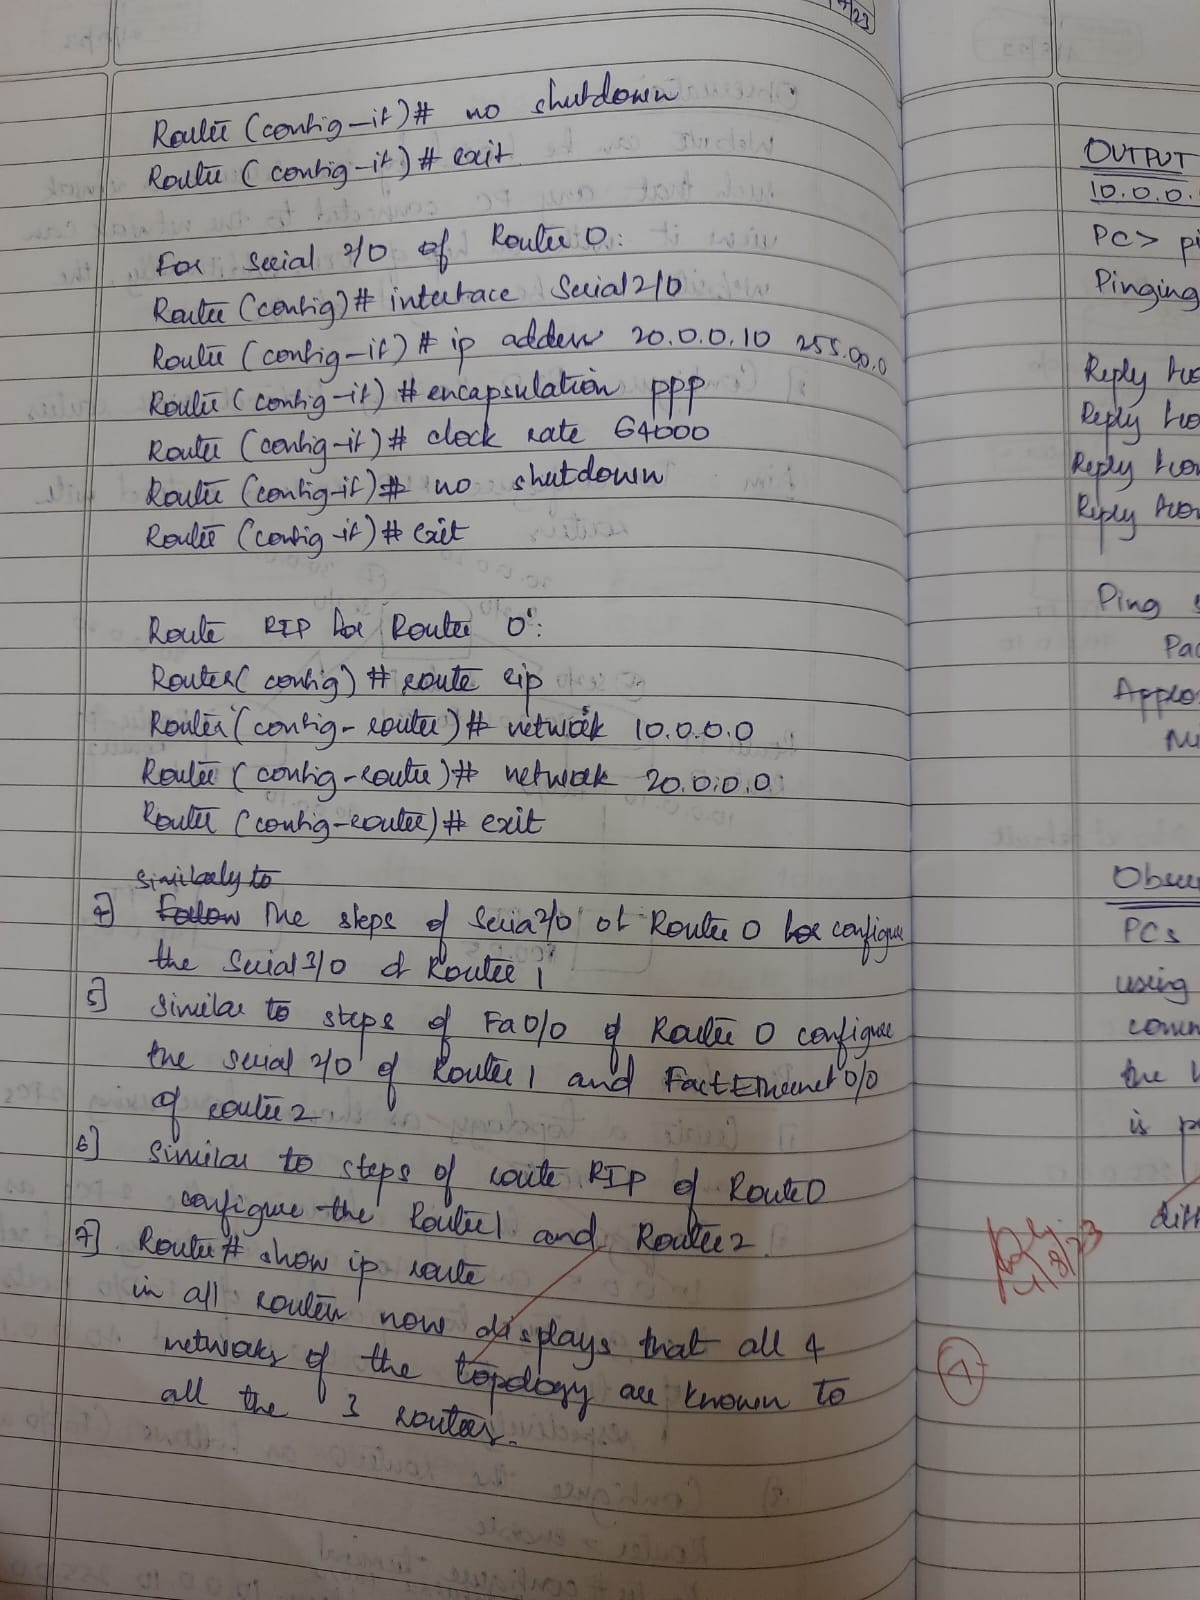 7/23
Router (config-if)# no shutdown
Router (config-if)# exit
For serial 2/0 of Router 0:
Router (config)# interface Serial 2/0
Router (config-if)# ip address 20.0.0.10 255.0.0.0
Router (config-if)# encapsulation ppp
Router (config-if)# clock rate 64000
Router (config-if)# no shutdown
Router (config-if)# exit
Route RIP for Router 0:
Router (config)# route rip
Router (config-router)# network 10.0.0.0
Router (config-router)# network 20.0.0.0
Router (config-router)# exit
similarly to
4] Follow The steps of Seria2/0 of Router 0 for configure
the Serial 3/0 of Router 1
5] Similar to steps of Fa0/0 of Router 0 configure
the serial 2/0 of Router 1 and FastEthernet 0/0
of router 2
6] Similar to steps of route RIP of Route0
configure the Router1 and Router2
7] Router# show ip route
in all routers now displays that all 4
networks of the topology are known to
all the 3 routers.
OUTPUT
10.0.0.
PC> pi
Pinging
Reply fro
Reply fro
Reply from
Reply from
Ping s
Pac
Approx
Obser
PCs
using
comm
the
is p
diff